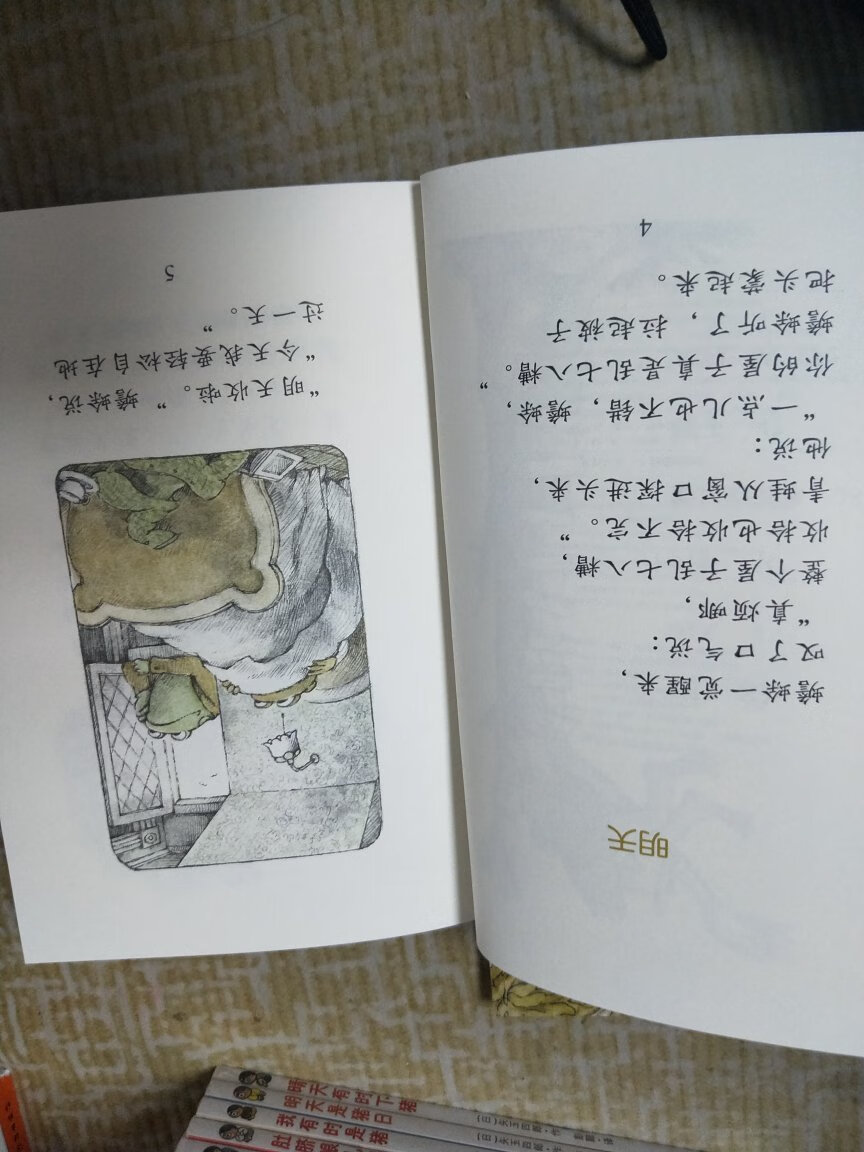 明天
蟾蜍一觉醒来，
叹了口气说：
“真烦哪，
整个屋子乱七八糟，
收拾也收拾不完。”
青蛙从窗口探进头来，
他说：
“一点儿也不错，蟾蜍，
你的屋子真是乱七八糟。”
蟾蜍听了，拉起被子
把头蒙起来。
4
“明天收啦。”蟾蜍说，
“今天我要轻松自在地
过一天。”
5
晴天有时下猪
明天是猪日
我有时是猪
肚脐眼